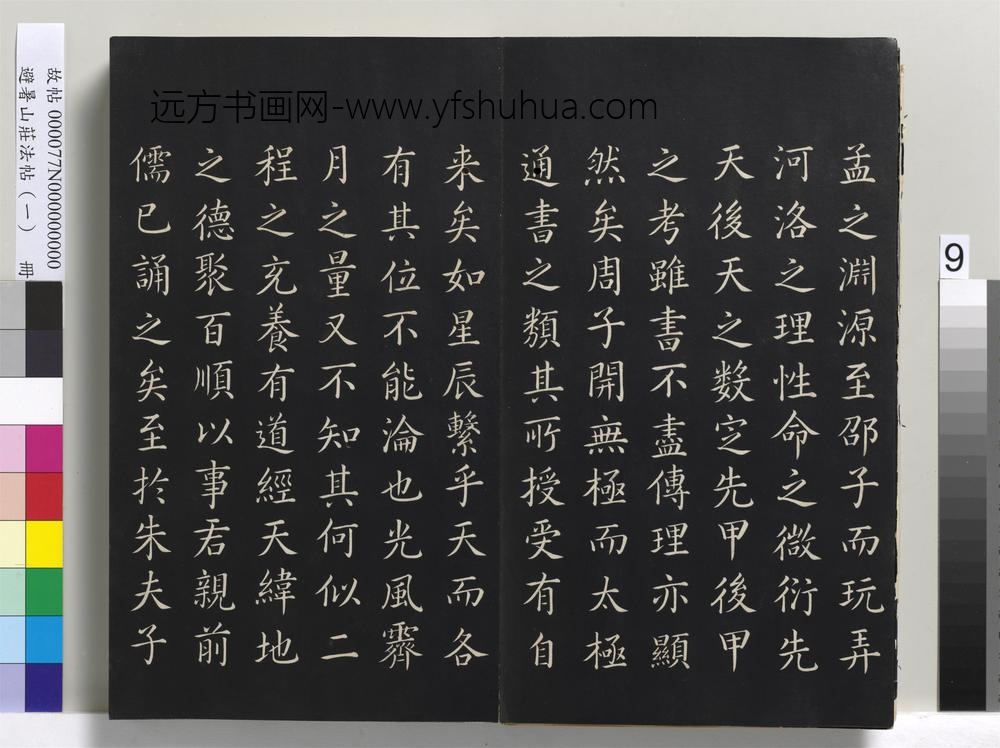 孟之淵源至邵子而玩弄
河洛之理性命之微衍先
天後天之数定先甲後甲
之考雖書不盡傳理亦顯
然矣周子開無極而太極
通書之類其所授受有自
来矣如星辰繫乎天而各
有其位不能淪也光風霽
月之量又不知其何似二
程之充養有道經天緯地
之德聚百順以事君親前
儒已誦之矣至於朱夫子
远方书画网-www.yfshuhua.com
故帖000077N000000000
避暑山莊法帖(一) 冊
9